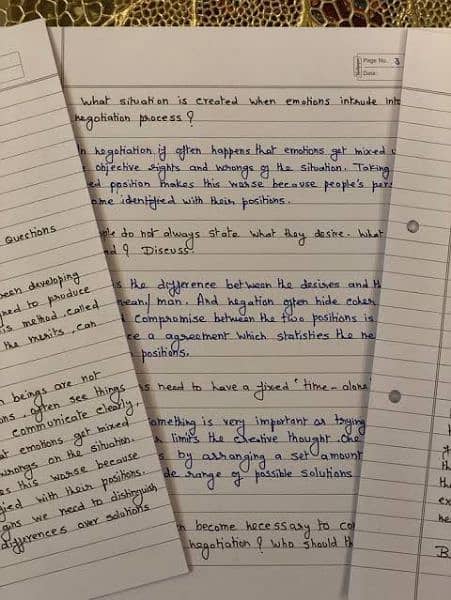 Page No. 3
Date:
What situation is created when emotions intrude int
negotiation process ?
n negotiation it often happens that emotions get mixed
objective rights and wrongs of the situation. Taking
ed position makes this worse because people's per
ome identified with their positions.
ple do not always state what they desire. What
nd ? Discuss.
s the difference between the desires and
mean/ man. And negation often hide
compromise between the two positions is
ce a agreement which statisties the ne
positions.
s need to have a fixed 'time-alone
omething is very important as trying
limits the creative thought. One
s by arranging a set amount
de range of possible solutions
n become necessary to co
negotiation ? Who should th
Questions
been developing
ned to produce
is method, called
the merits, can
n beings are not
ons, often see things
communicate clearly,
at emotions get mixed
wrongs on the situation.
es this worse because
fied with their positions.
gns we need to distinguish
differences over solutions
th
the
ex
he
B